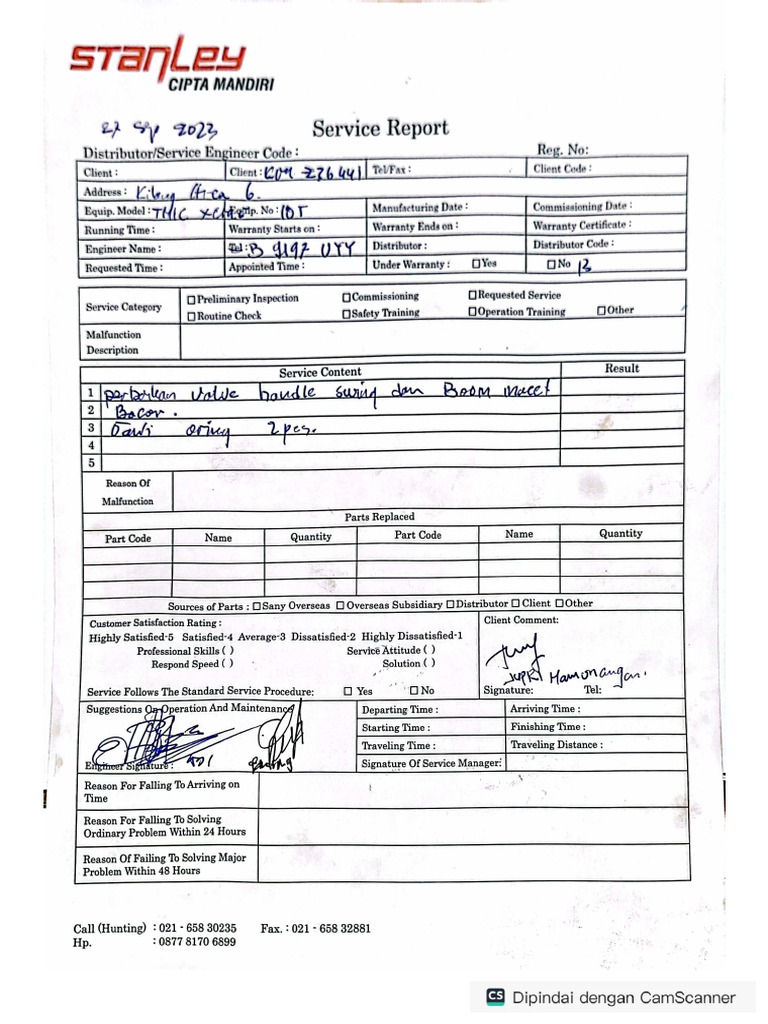 STANLEY
CIPTA MANDIRI
27 Sep 2023
Service Report
Distributor/Service Engineer Code :
Reg. No:
Client :
Client : KOM 276441
Tel/Fax :
Client Code :
Address :
Equip. Model : TMC
Equip. No : 10T
Manufacturing Date :
Commissioning Date :
Running Time :
Warranty Starts on :
Warranty Ends on :
Warranty Certificate :
Engineer Name :
Tel : B 9197 UYY
Distributor :
Distributor Code :
Requested Time :
Appointed Time :
Under Warranty : □ Yes
□ No
Service Category
□ Preliminary Inspection
□ Commissioning
□ Requested Service
□ Routine Check
□ Safety Training
□ Operation Training
□ Other
Malfunction
Description
Service Content
Result
1 perbaikan valve handle swing dan Boom macet
2 Bocor.
3 Ganti oring 2 pcs.
4
5
Reason Of
Malfunction
Parts Replaced
Part Code Name Quantity Part Code Name Quantity
Sources of Parts : □ Sany Overseas □ Overseas Subsidiary □ Distributor □ Client □ Other
Customer Satisfaction Rating :
Client Comment:
Highly Satisfied-5 Satisfied-4 Average-3 Dissatisfied-2 Highly Dissatisfied-1
Professional Skills ( ) Service Attitude ( )
Respond Speed ( ) Solution ( )
Hamonangan.
Service Follows The Standard Service Procedure: □ Yes □ No
Signature: Tel:
Suggestions On Operation And Maintenance
Departing Time :
Arriving Time :
Starting Time :
Finishing Time :
Traveling Time :
Traveling Distance :
Engineer Signature :
Signature Of Service Manager:
Reason For Falling To Arriving on
Time
Reason For Falling To Solving
Ordinary Problem Within 24 Hours
Reason Of Failing To Solving Major
Problem Within 48 Hours
Call (Hunting) : 021 - 658 30235 Fax. : 021 - 658 32881
Hp. : 0877 8170 6899
CS Dipindai dengan CamScanner